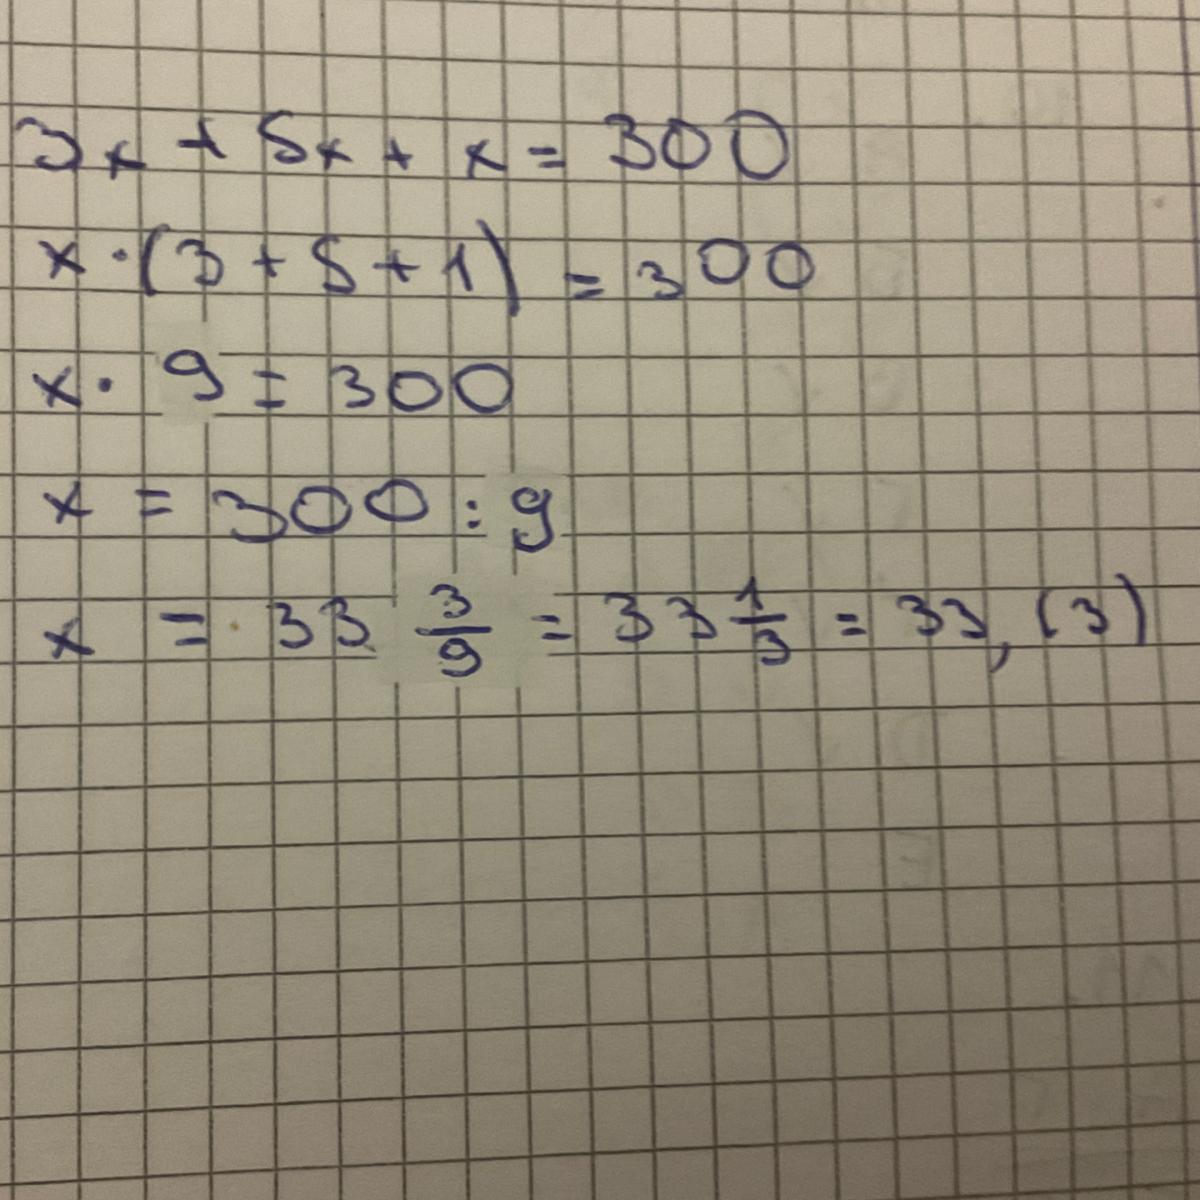 3x + 5x + x = 300
x · (3 + 5 + 1) = 300
x · 9 = 300
x = 300 : 9
x = 33 3/9 = 33 1/3 = 33,(3)